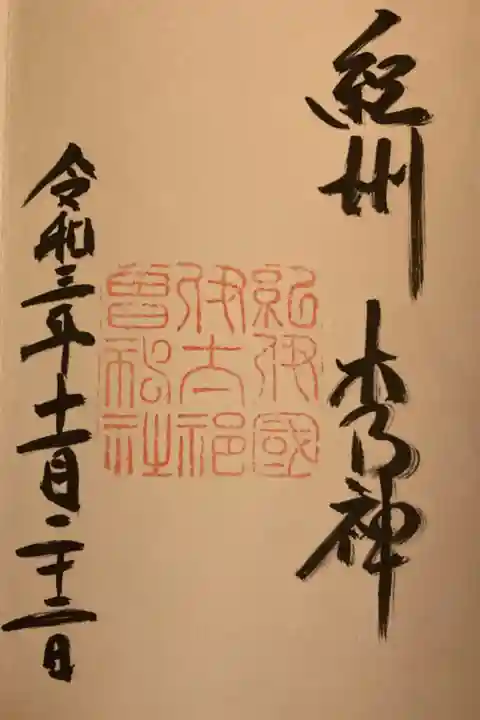 紀州 木の神
紀伊國
伊太祁
曽神社
令和三年十一月二十二日